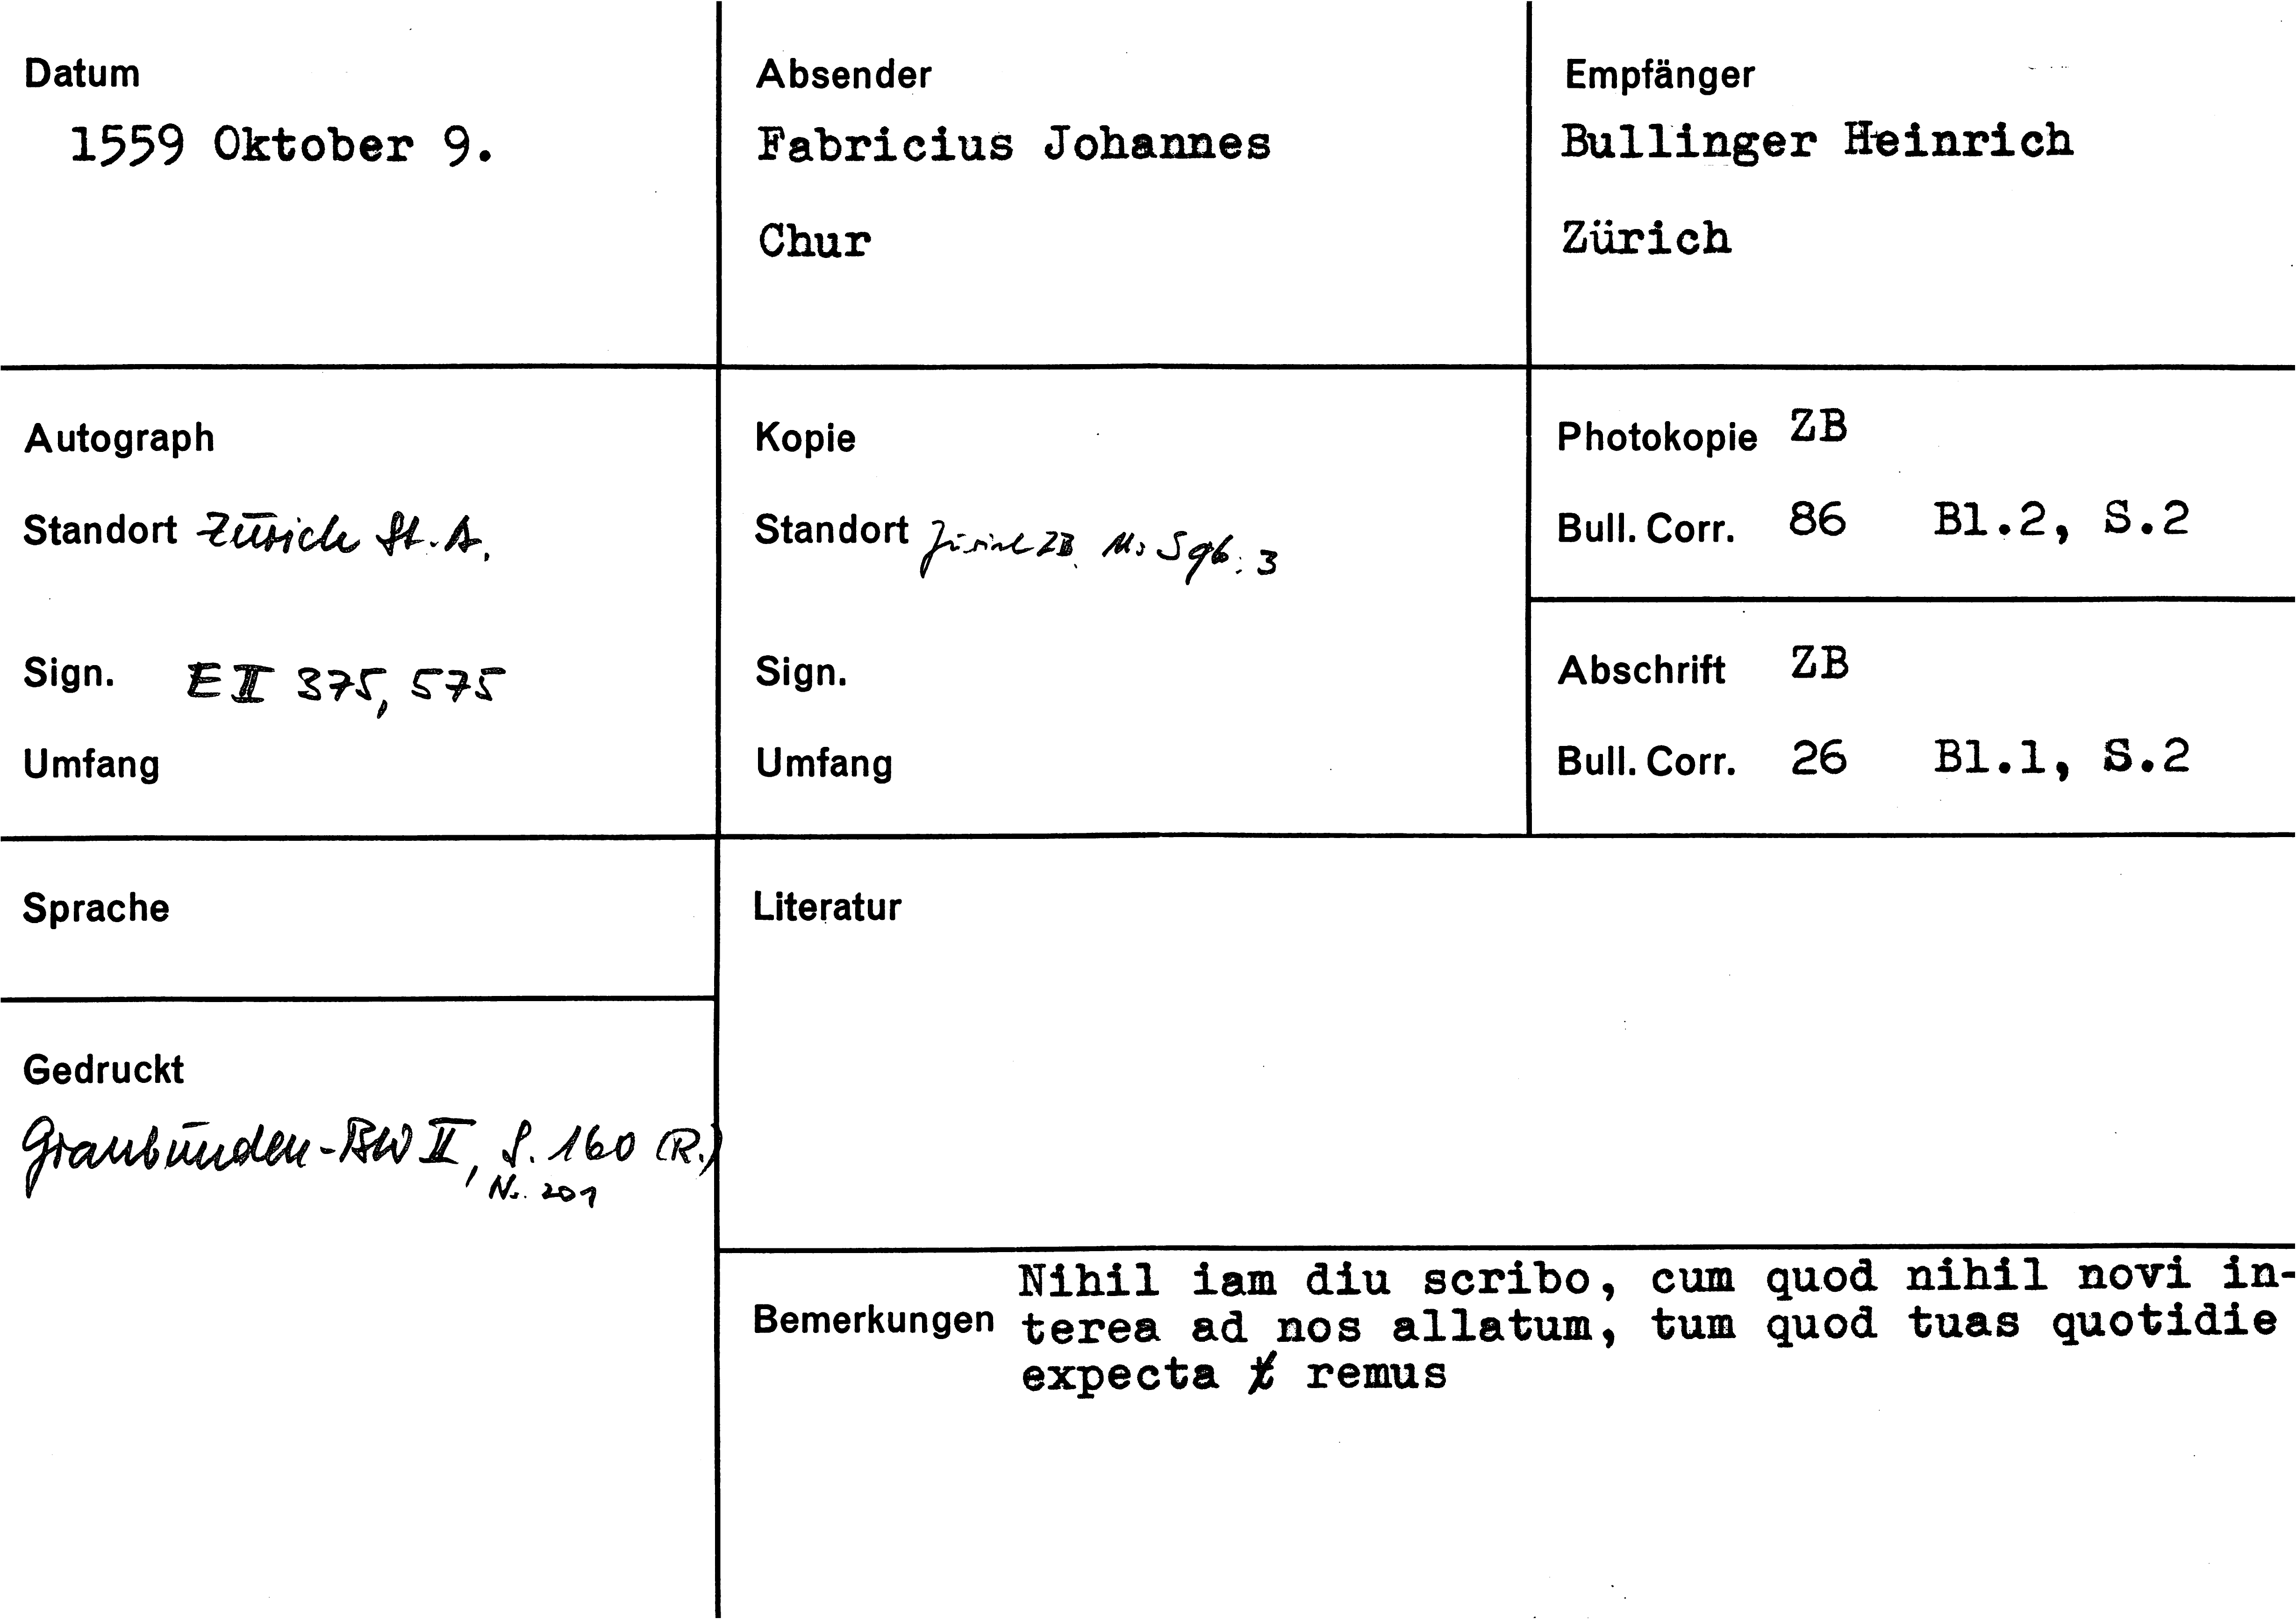 Datum
1559 Oktober 9.
Absender
Fabricius Johannes
Chur
Empfänger
Bullinger Heinrich
Zürich
Autograph
Standort Zürich St. A.
Sign. E II 375, 575
Umfang
Kopie
Standort Zürich ZB. Ms S 96: 3
Sign.
Umfang
Photokopie ZB
Bull. Corr. 86 Bl.2, S.2
Abschrift ZB
Bull. Corr. 26 Bl.1, S.2
Sprache
Gedruckt
Graubünden-BW II, S. 160 (R.)
Nr. 201
Literatur
Bemerkungen
Nihil iam diu scribo, cum quod nihil novi in-
terea ad nos allatum, tum quod tuas quotidie
expecta t remus